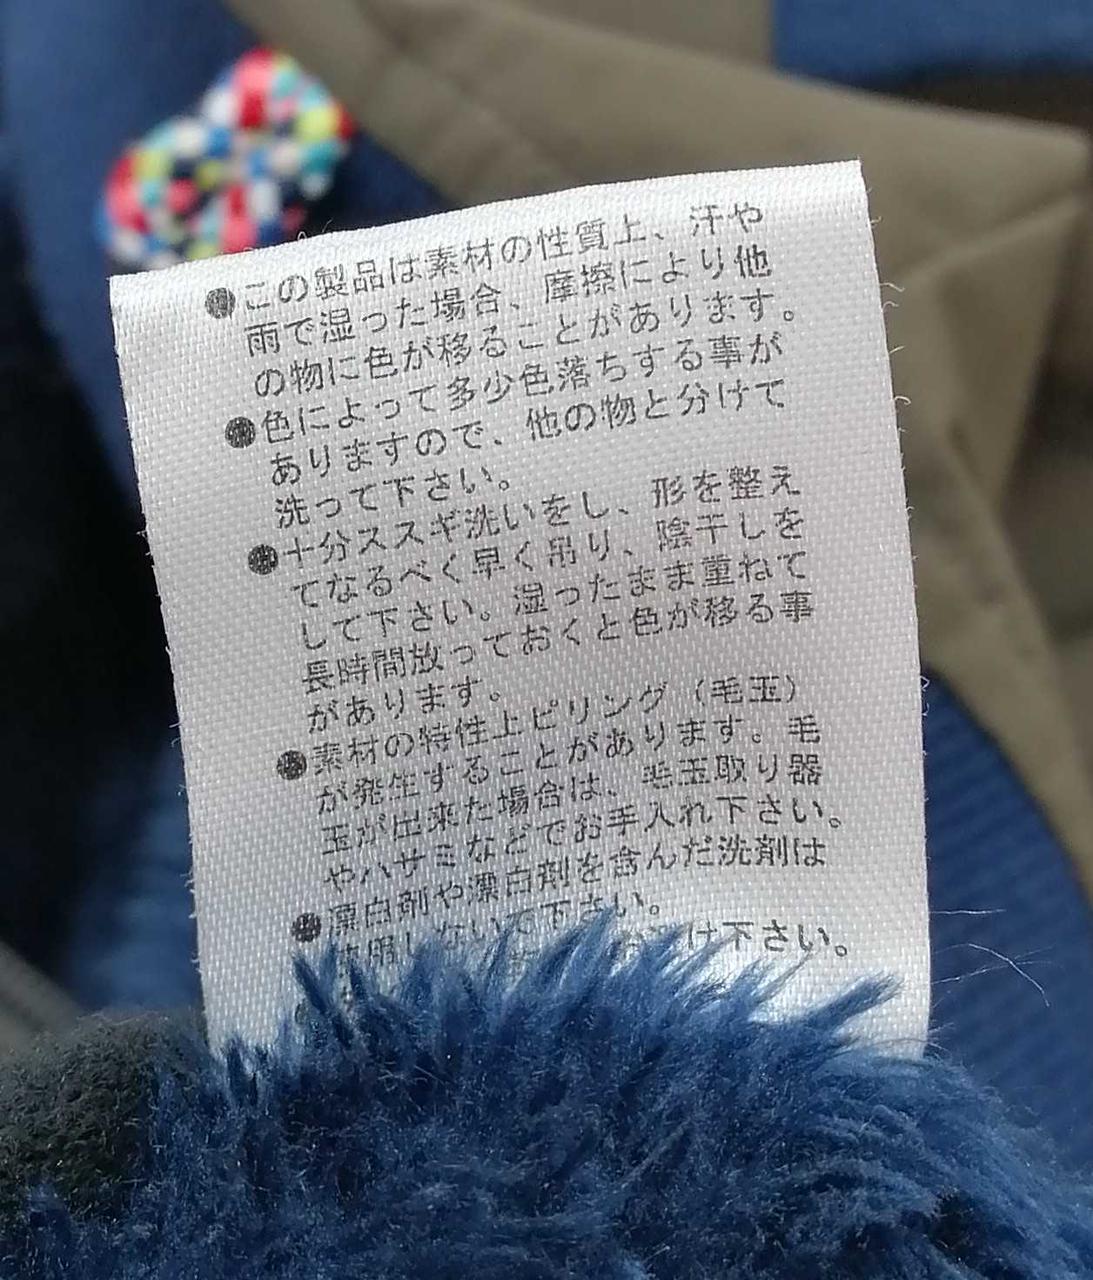 ●この製品は素材の性質上、汗や
雨で湿った場合、摩擦により他
の物に色が移ることがあります。
●色によって多少色落ちする事が
ありますので、他の物と分けて
洗って下さい。
●十分ススギ洗いをし、形を整え
てなるべく早く吊り、陰干しを
して下さい。湿ったまま重ねて
長時間放っておくと色が移る事
があります。
●素材の特性上ピリング（毛玉）
が発生することがあります。毛
玉が出来た場合は、毛玉取り器
やハサミなどでお手入れ下さい。
●漂白剤や漂白剤を含んだ洗剤は
使用しないで下さい。
け下さい。